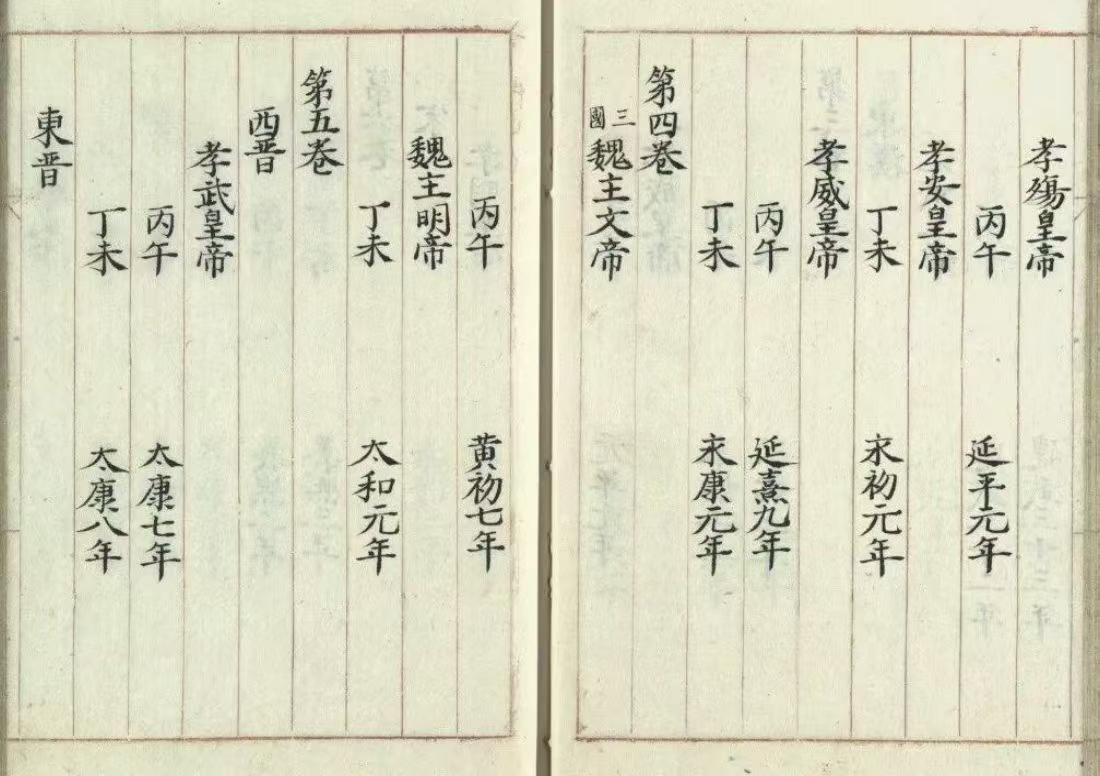 孝殤皇帝
丙午 延平元年
孝安皇帝
丁未 永初元年
孝威皇帝
丙午 延熹九年
丁未 永康元年
第四卷
三國 魏主文帝
丙午 黄初七年
魏主明帝
丁未 太和元年
第五卷
西晋
孝武皇帝
丙午 太康七年
丁未 太康八年
東晋